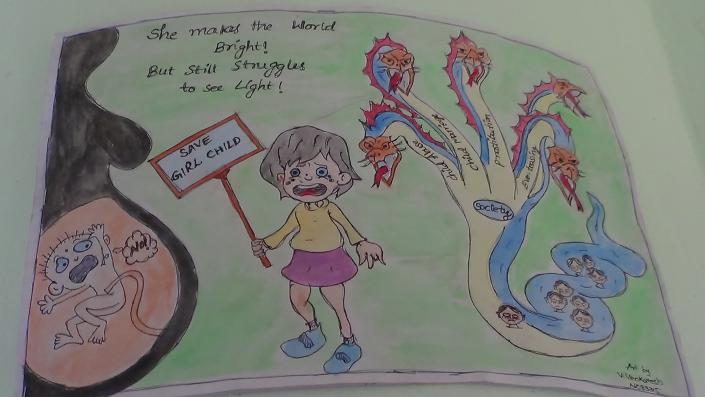 She makes the World
Bright!
But Still Struggles
to see Light!
SAVE
GIRL CHILD
No!
Child Abuse
Child Marriage
Prostitution
Eve-teasing
Society
Art by